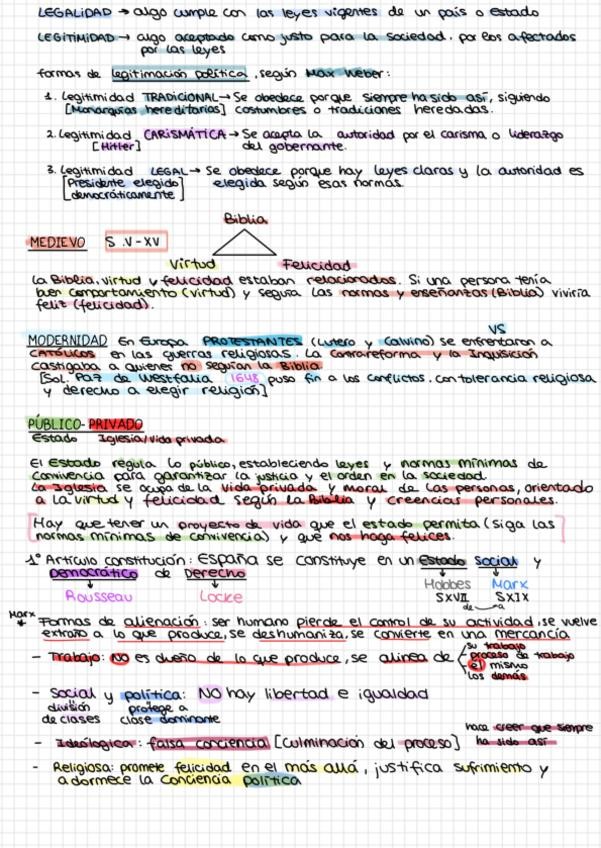 LEGALIDAD → algo cumple con las leyes vigentes de un país o estado
LEGITIMIDAD → algo aceptado como justo para la sociedad, por los afectados
por las leyes
formas de legitimación política, según Max Weber:
1. Legitimidad TRADICIONAL → Se obedece porque siempre ha sido así, siguiendo
[Monarquías hereditarias] costumbres o tradiciones heredadas.
2. Legitimidad CARISMÁTICA → Se acepta la autoridad por el carisma o liderazgo
[Hitler] del gobernante.
3. Legitimidad LEGAL → Se obedece porque hay leyes claras y la autoridad es
[Presidente elegido elegida según esas normas.
democráticamente]
Biblia
MEDIEVO S.V-XV
Virtud Felicidad
La Biblia, virtud y felicidad estaban relacionados. Si una persona tenía
buen comportamiento (virtud) y seguía las normas y enseñanzas (Biblia) viviría
feliz (felicidad).
VS
MODERNIDAD En Europa PROTESTANTES (Lutero y Calvino) se enfrentaron a
CATÓLICOS en las guerras religiosas. La Contrareforma y la Inquisición
castigaba a quienes no seguían la Biblia
[Sol. Paz de Westfalia 1648 puso fin a los conflictos, con tolerancia religiosa
y derecho a elegir religión]
PÚBLICO-PRIVADO
Estado Iglesia/vida privada
El Estado regula lo público, estableciendo leyes y normas mínimas de
convivencia para garantizar la justicia y el orden en la sociedad.
La Iglesia se ocupa de la vida privada y moral de las personas, orientado
a la virtud y felicidad según la Biblia y creencias personales.
[Hay que tener un proyecto de vida que el estado permita (siga las
normas mínimas de convivencia) y que nos haga felices.]
1º Artículo constitución: España se constituye en un Estado social y
Democrático de Derecho Hobbes Marx
Rousseau Locke SXVII SXIX
de a
Marx
* Formas de alienación: ser humano pierde el control de su actividad, se vuelve
extraño a lo que produce, se deshumaniza, se convierte en una mercancía
su trabajo
- Trabajo: NO es dueño de lo que produce, se aliena de proceso de trabajo
él mismo
los demás
- Social y política: NO hay libertad e igualdad
división protege a
de clases clase dominante
hace creer que siempre
- Ideológica: falsa conciencia [culminación del proceso] ha sido así
- Religiosa: promete felicidad en el más allá, justifica sufrimiento y
adormece la conciencia política